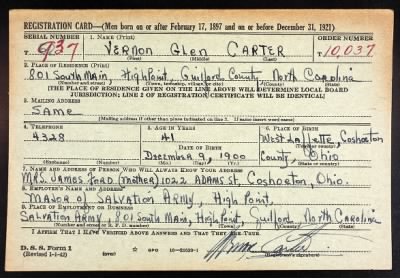 REGISTRATION CARD—(Men born on or after February 17, 1897 and on or before December 31, 1921)
SERIAL NUMBER 1. NAME (Print) ORDER NUMBER
T 937 VERNON Glen CARTER 10,037
(First) (Middle) (Last)
2. PLACE OF RESIDENCE (Print)
801 South Main, High Point, Guilford County, North Carolina
(Number and street) (Town, township, village, or city) (County) (State)
[THE PLACE OF RESIDENCE GIVEN ON THE LINE ABOVE WILL DETERMINE LOCAL BOARD
JURISDICTION; LINE 2 OF REGISTRATION CERTIFICATE WILL BE IDENTICAL]
3. MAILING ADDRESS
SAME
[Mailing address if other than place indicated on line 2. If same insert word same]
4. TELEPHONE 5. AGE IN YEARS 6. PLACE OF BIRTH
4328 41 West La Coshocton
DATE OF BIRTH (Town or county)
December 9, 1900 County, Ohio
(Exchange) (Number) (Mo.) (Day) (Yr.) (State or country)
7. NAME AND ADDRESS OF PERSON WHO WILL ALWAYS KNOW YOUR ADDRESS
Mrs. James Ford (mother) 1022 Adams St. Coshocton, Ohio.
8. EMPLOYER'S NAME AND ADDRESS
Major of Salvation Army, High Point,
9. PLACE OF EMPLOYMENT OR BUSINESS
Salvation Army, 801 South Main, High Point, Guilford, North Carolina
(Number and street or R. F. D. number) (Town) (County) (State)
I AFFIRM THAT I HAVE VERIFIED ABOVE ANSWERS AND THAT THEY ARE TRUE.
D. S. S. Form 1
(Revised 1-1-42) GPO 16—21630-1 Carter